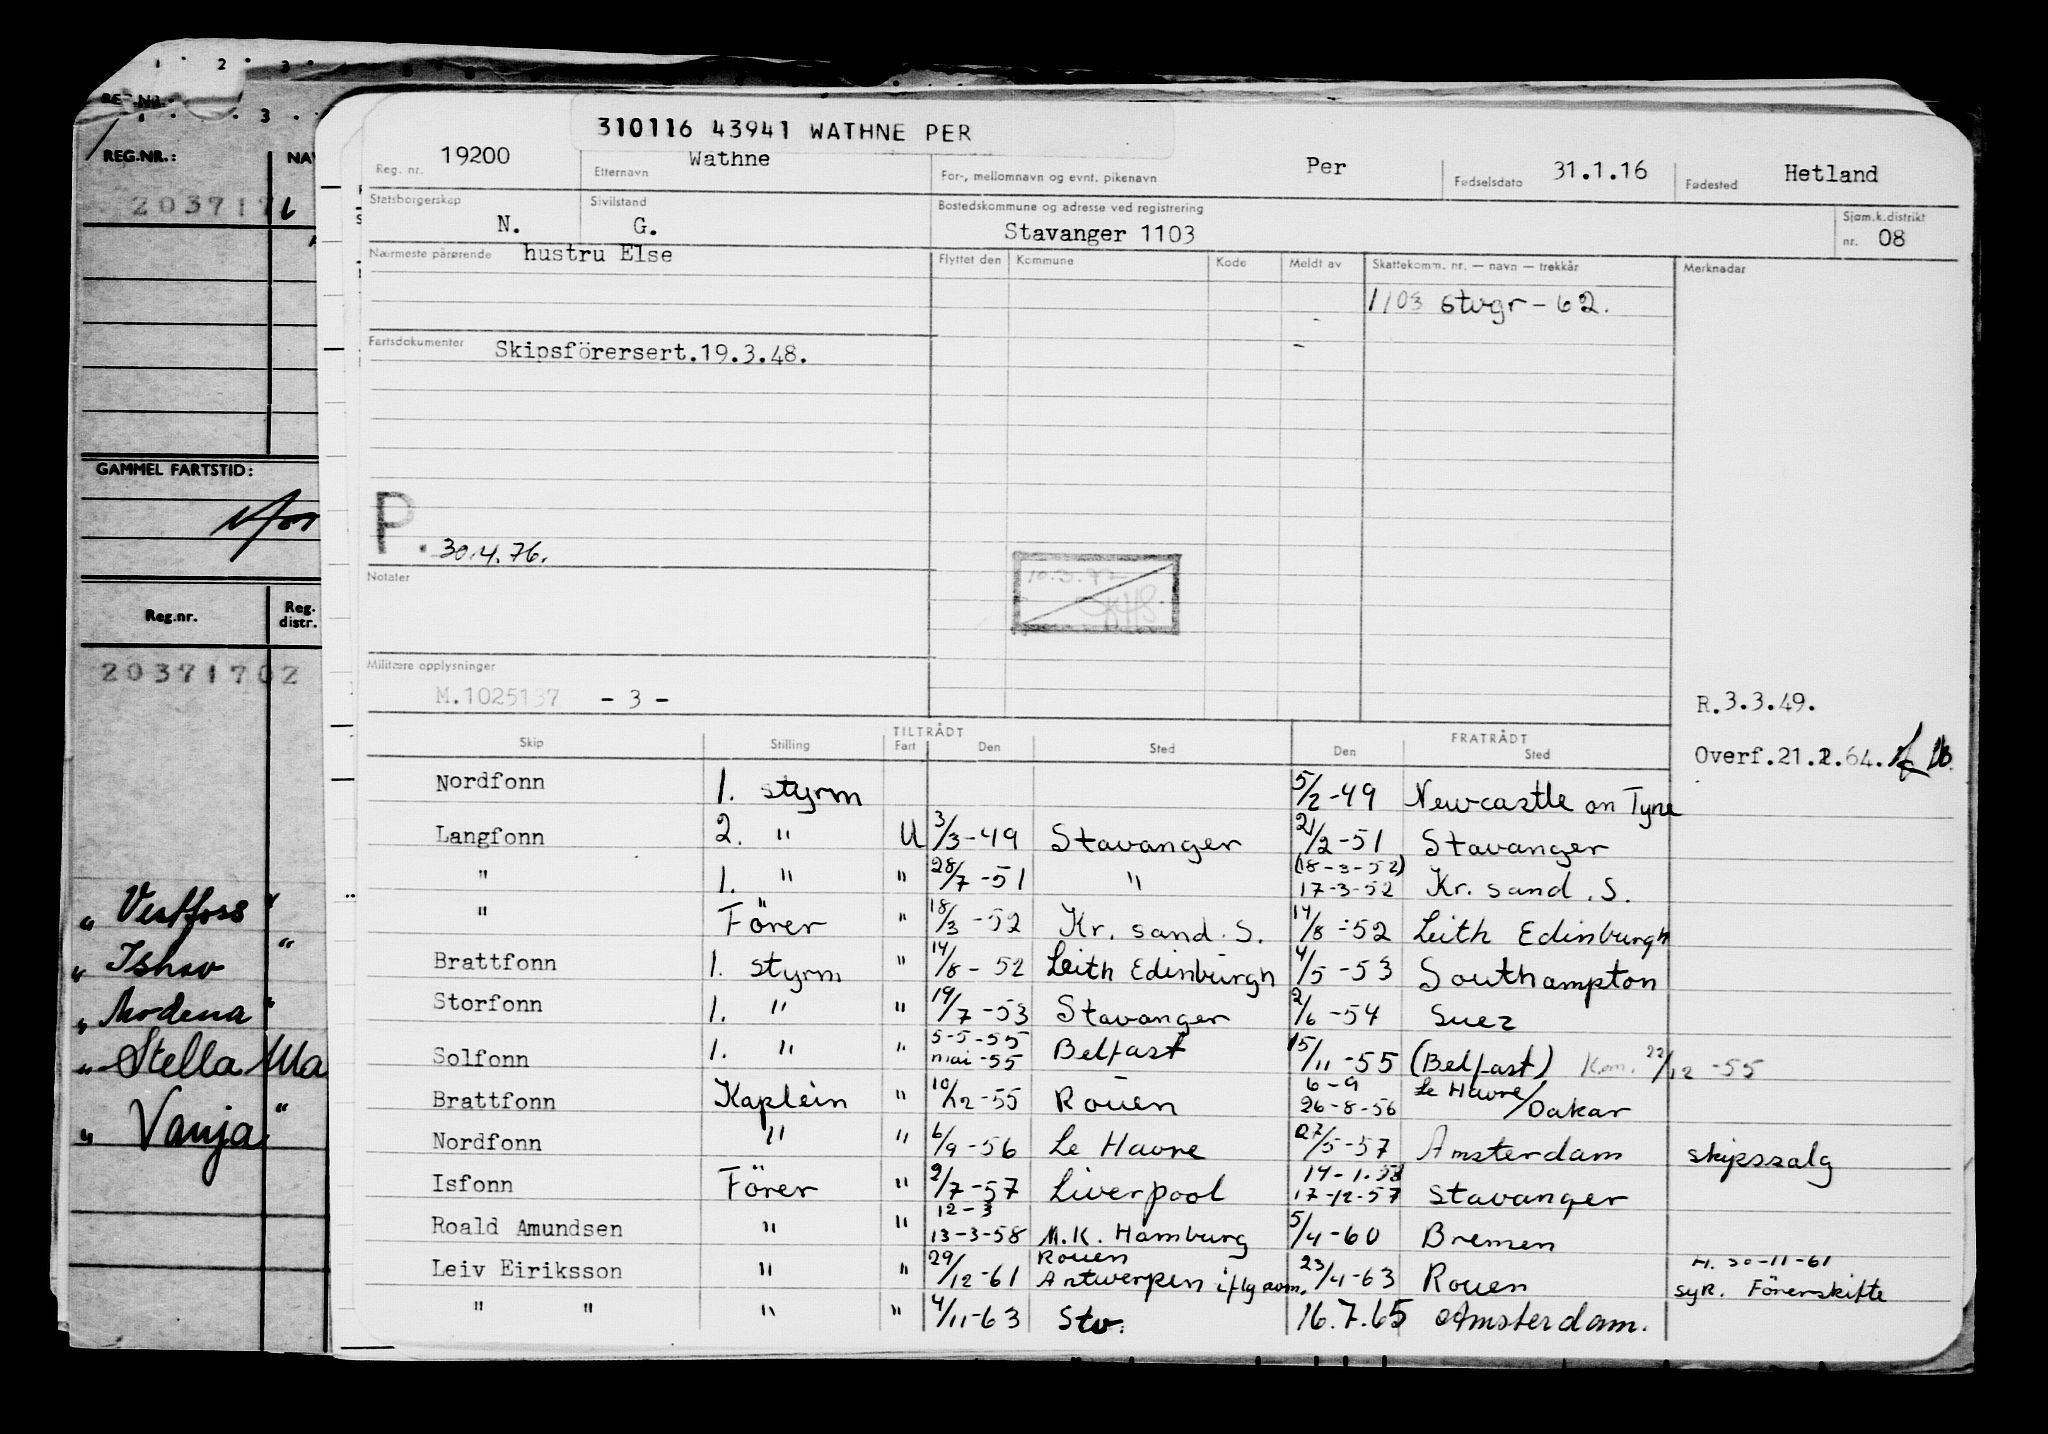 REG.NR.:
REG.NR.: NAV
2037171
GAMMEL FARTSTID:
Reg.nr. Reg. distr.
20371702
" Vestfoss "
" Ishav "
" Modena "
" Stella Ma
" Vanja "
310116 43941 WATHNE PER
Reg. nr. 19200 Etternavn Wathne For-, mellomnavn og evnt. pikenavn Per Fødselsdato 31.1.16 Fødested Hetland
Statsborgerskap N. Sivilstand G. Bostedskommune og adresse ved registrering Stavanger 1103 Sjøm.k.distrikt nr. 08
Nærmeste pårørende hustru Else Flyttet den Kommune Kode Meldt av Skattekomm. nr. — navn — trekkår Merknader
1103 Stvgr - 62.
Fartsdokumenter Skipsförersert.19.3.48.
P. 30.4.76.
Notater
Militære opplysninger
M.1025137 - 3 -
R.3.3.49.
Overf.21.2.64.
TILTRÅDT FRATRÅDT
Skip Stilling Fart Den Sted Den Sted
Nordfonn 1. styrm 5/2-49 Newcastle on Tyne
Langfonn 2. " U 3/3-49 Stavanger 21/2-51 Stavanger
" 1. " " 28/7-51 " (18-3-52) 17-3-52 Kr. sand. S.
" Förer " 18/3-52 Kr. sand. S. 14/8-52 Leith Edinburgh
Brattfonn 1. styrm " 14/8-52 Leith Edinburgh 4/5-53 Southampton
Storfonn 1. " " 19/7-53 Stavanger 2/6-54 Suez
Solfonn 1. " " 5-5-55 mai-55 Belfast 15/11-55 (Belfast) Kom. 22/12-55
Brattfonn Kaptein " 10/12-55 Rouen 6-9 26-8-56 Le Havre/Dakar
Nordfonn " " 6/9-56 Le Havre 27/5-57 Amsterdam skipssalg
Isfonn Förer " 2/7-57 Liverpool 14-1-58 17-12-57 Stavanger
Roald Amundsen " " 12-3 13-3-58 M.K. Hamburg 5/4-60 Bremen
Leiv Eiriksson " " 29/12-61 Rouen Antwerpen iflg avm. 23/4-63 Rouen H. 30-11-61 syk. Förerskifte
" " " " 4/11-63 Stv. 16.7.65 Amsterdam.